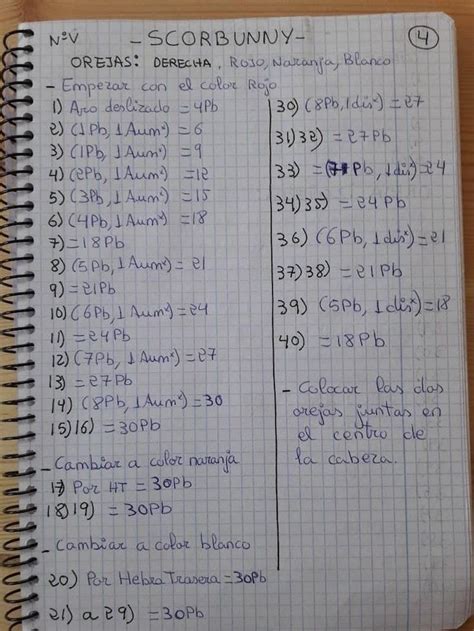 NºV - SCORBUNNY - 4
OREJAS: DERECHA, ROJO, Naranja, Blanco
- Empezar con el color Rojo
1) Aro deslizado = 4Pb
2) (1Pb, 1Aum²) = 6
3) (1Pb, 1Aum²) = 9
4) (2Pb, 1Aum²) = 12
5) (3Pb, 1Aum²) = 15
6) (4Pb, 1Aum²) = 18
7) = 18Pb
8) (5Pb, 1Aum²) = 21
9) = 21Pb
10) (6Pb, 1Aum²) = 24
11) = 24Pb
12) (7Pb, 1Aum²) = 27
13) = 27Pb
14) (8Pb, 1Aum²) = 30
15)16) = 30Pb
- Cambiar a color naranja
17) Por HT = 30Pb
18)19) = 30Pb
- Cambiar a color blanco
20) Por Hebra Trasera = 30Pb
21) a 29) = 30Pb
30) (8Pb, 1dis²) = 27
31)32) = 27Pb
33) = (7Pb, 1dis²) = 24
34)35) = 24Pb
36) (6Pb, 1dis²) = 21
37)38) = 21Pb
39) (5Pb, 1dis²) = 18
40) = 18Pb
- Colocar las dos
orejas juntas en
el centro de
la cabeza.